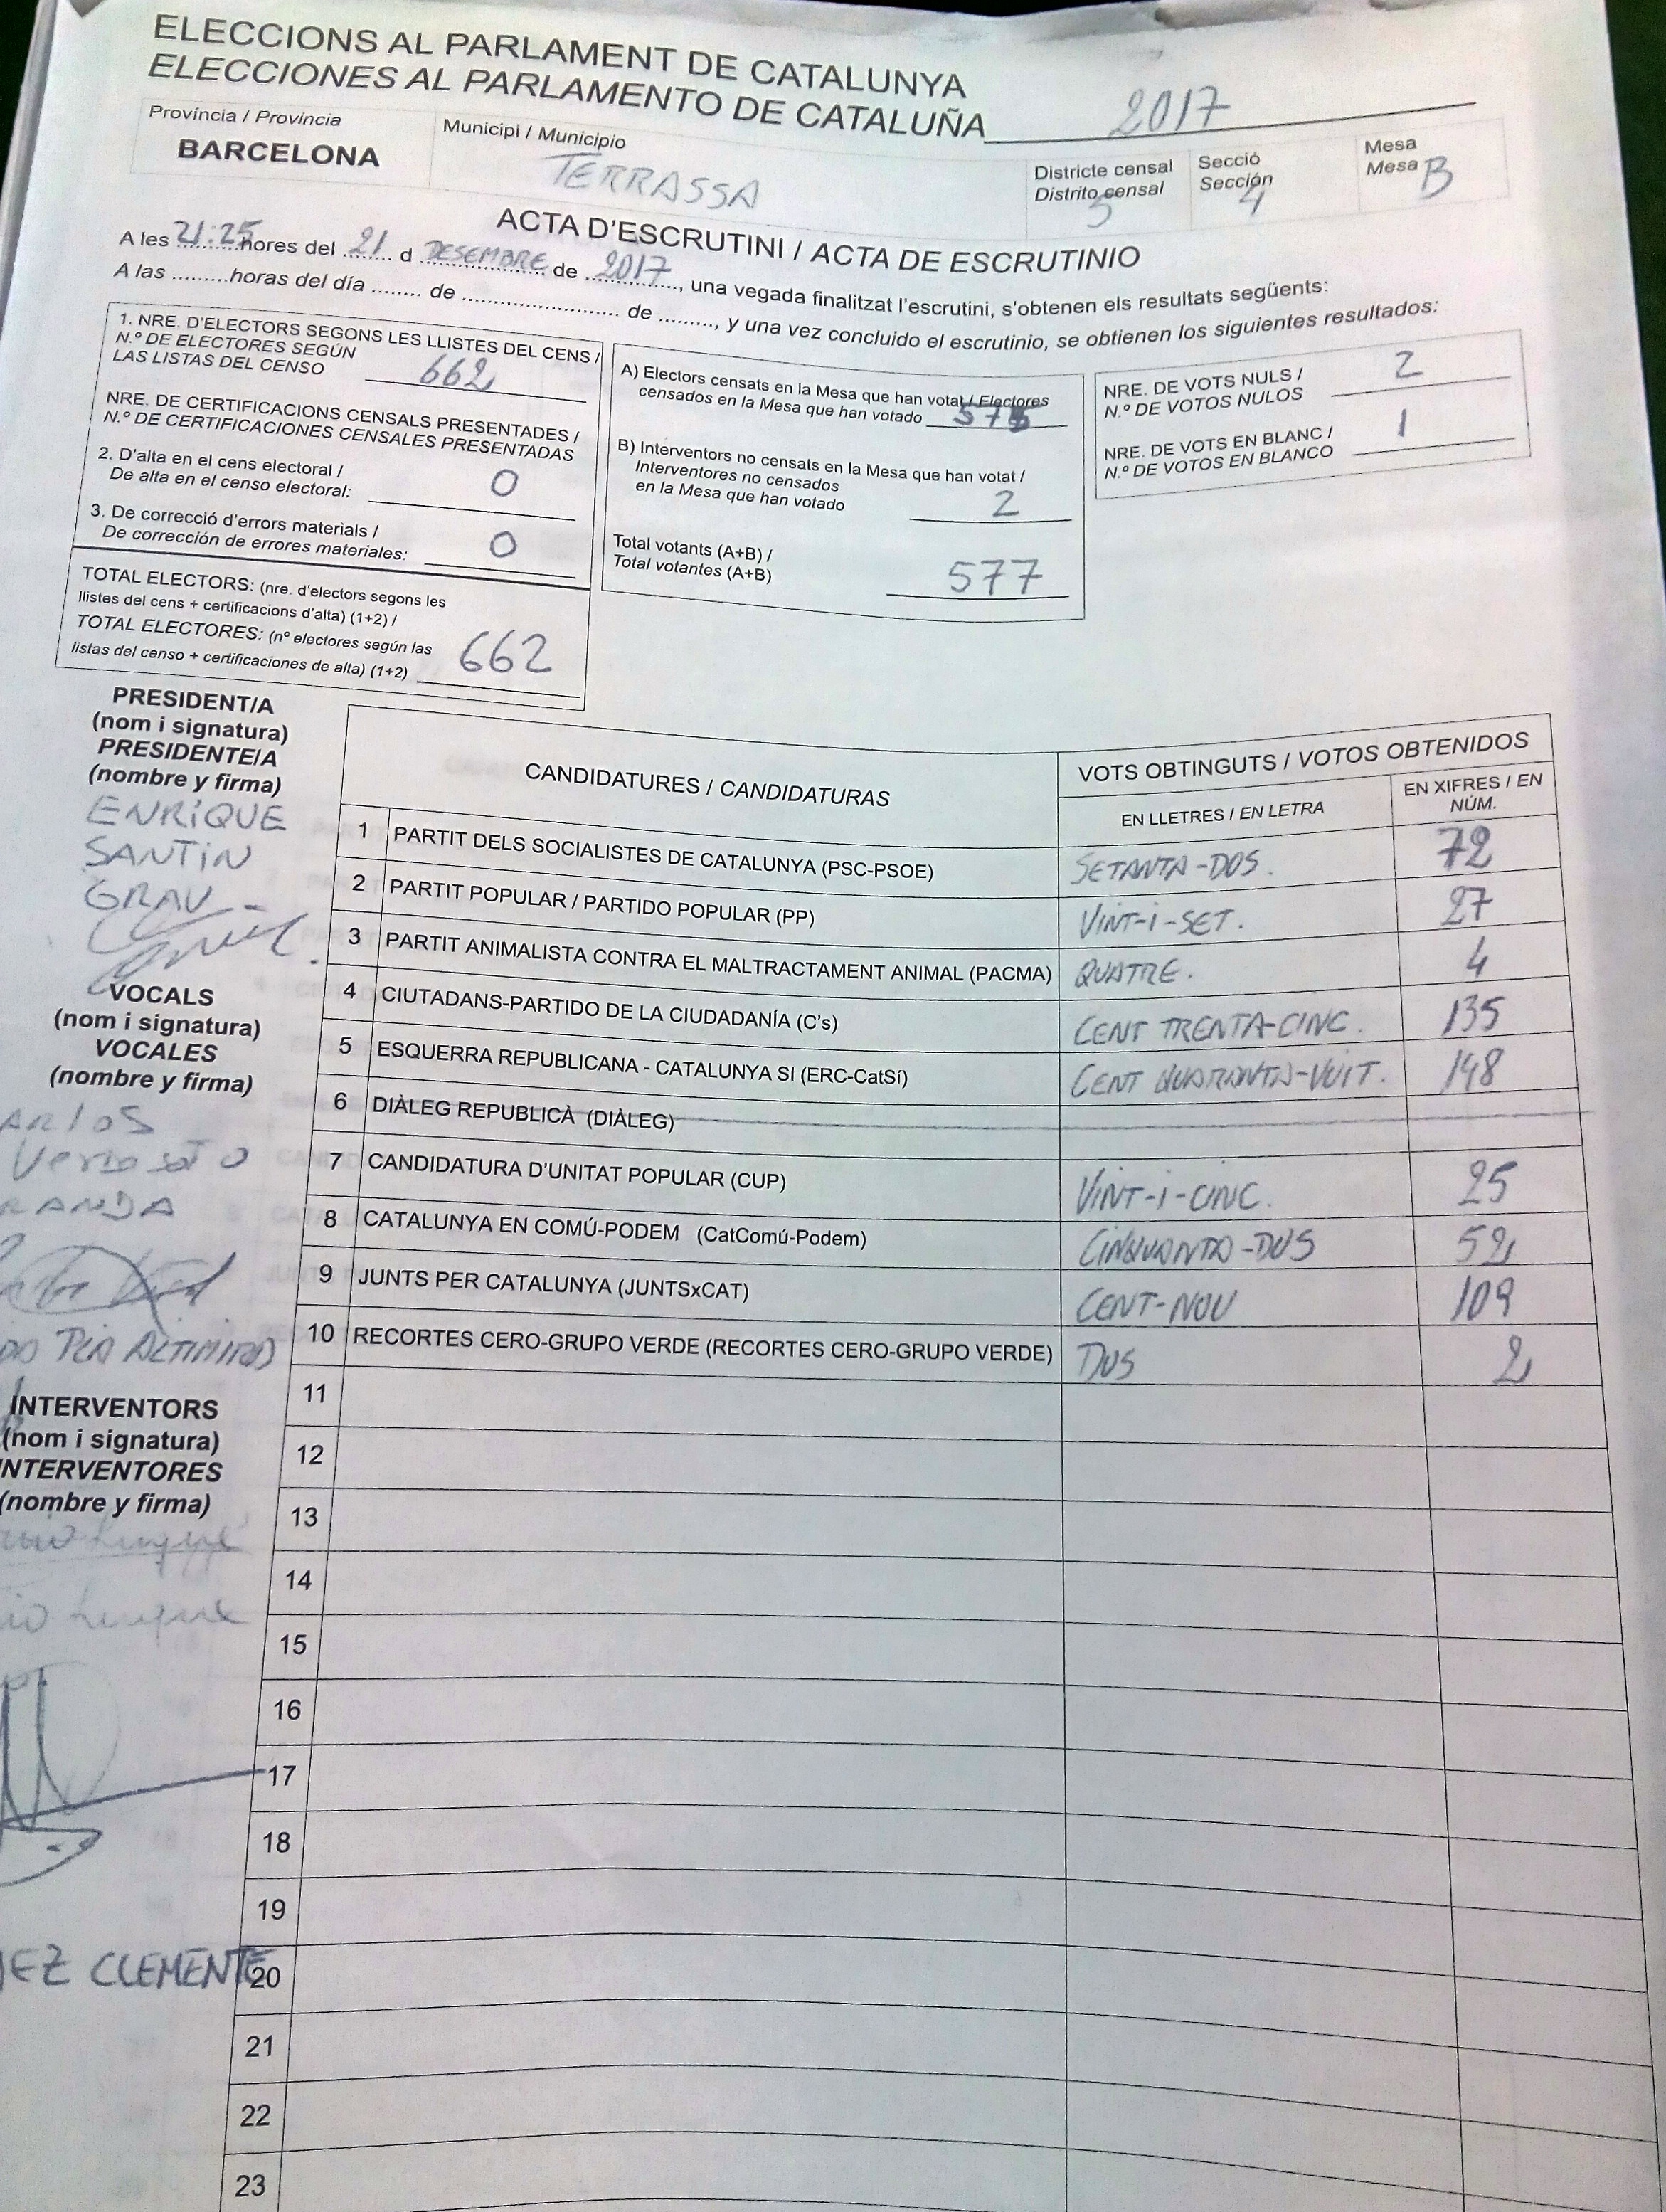 ELECCIONS AL PARLAMENT DE CATALUNYA
ELECCIONES AL PARLAMENTO DE CATALUÑA 2017
Província / Provincia
BARCELONA
Municipi / Municipio
TERRASSA
Districte censal
Distrito censal
5
Secció
Sección
4
Mesa
Mesa B
ACTA D'ESCRUTINI / ACTA DE ESCRUTINIO
A les 21:25 hores del 21 d DESEMBRE de 2017, una vegada finalitzat l'escrutini, s'obtenen els resultats següents:
A las .........horas del día ........ de ............................ de ........., y una vez concluido el escrutinio, se obtienen los siguientes resultados:
1. NRE. D'ELECTORS SEGONS LES LLISTES DEL CENS /
N.º DE ELECTORES SEGÚN
LAS LISTAS DEL CENSO 662
NRE. DE CERTIFICACIONS CENSALS PRESENTADES /
N.º DE CERTIFICACIONES CENSALES PRESENTADAS
2. D'alta en el cens electoral /
De alta en el censo electoral: 0
3. De correcció d'errors materials /
De corrección de errores materiales: 0
TOTAL ELECTORS: (nre. d'electors segons les
llistes del cens + certificacions d'alta) (1+2) /
TOTAL ELECTORES: (nº electores según las
listas del censo + certificaciones de alta) (1+2) 662
A) Electors censats en la Mesa que han votat / Electores
censados en la Mesa que han votado 575
B) Interventors no censats en la Mesa que han votat /
Interventores no censados
en la Mesa que han votado 2
Total votants (A+B) /
Total votantes (A+B) 577
NRE. DE VOTS NULS / 2
N.º DE VOTOS NULOS
NRE. DE VOTS EN BLANC / 1
N.º DE VOTOS EN BLANCO
PRESIDENT/A
(nom i signatura)
PRESIDENTE/A
(nombre y firma)
ENRIQUE
SANTIN
GRAU
VOCALS
(nom i signatura)
VOCALES
(nombre y firma)
ARLOS
RANDA
PLA ALTIMIRAS
INTERVENTORS
(nom i signatura)
INTERVENTORES
(nombre y firma)
EZ CLEMENTE
CANDIDATURES / CANDIDATURAS
VOTS OBTINGUTS / VOTOS OBTENIDOS
EN LLETRES / EN LETRA
EN XIFRES / EN
NÚM.
1 PARTIT DELS SOCIALISTES DE CATALUNYA (PSC-PSOE) SETANTA-DOS. 72
2 PARTIT POPULAR / PARTIDO POPULAR (PP) VINT-I-SET. 27
3 PARTIT ANIMALISTA CONTRA EL MALTRACTAMENT ANIMAL (PACMA) QUATRE. 4
4 CIUTADANS-PARTIDO DE LA CIUDADANÍA (C's) CENT TRENTA-CINC. 135
5 ESQUERRA REPUBLICANA - CATALUNYA SI (ERC-CatSí) CENT QUARANTA-VUIT. 148
6 DIÀLEG REPUBLICÀ (DIÀLEG)
7 CANDIDATURA D'UNITAT POPULAR (CUP) VINT-I-CINC. 25
8 CATALUNYA EN COMÚ-PODEM (CatComú-Podem) CINQUANTA-DUS 52
9 JUNTS PER CATALUNYA (JUNTSxCAT) CENT-NOU 109
10 RECORTES CERO-GRUPO VERDE (RECORTES CERO-GRUPO VERDE) DUS 2
11
12
13
14
15
16
17
18
19
20
21
22
23